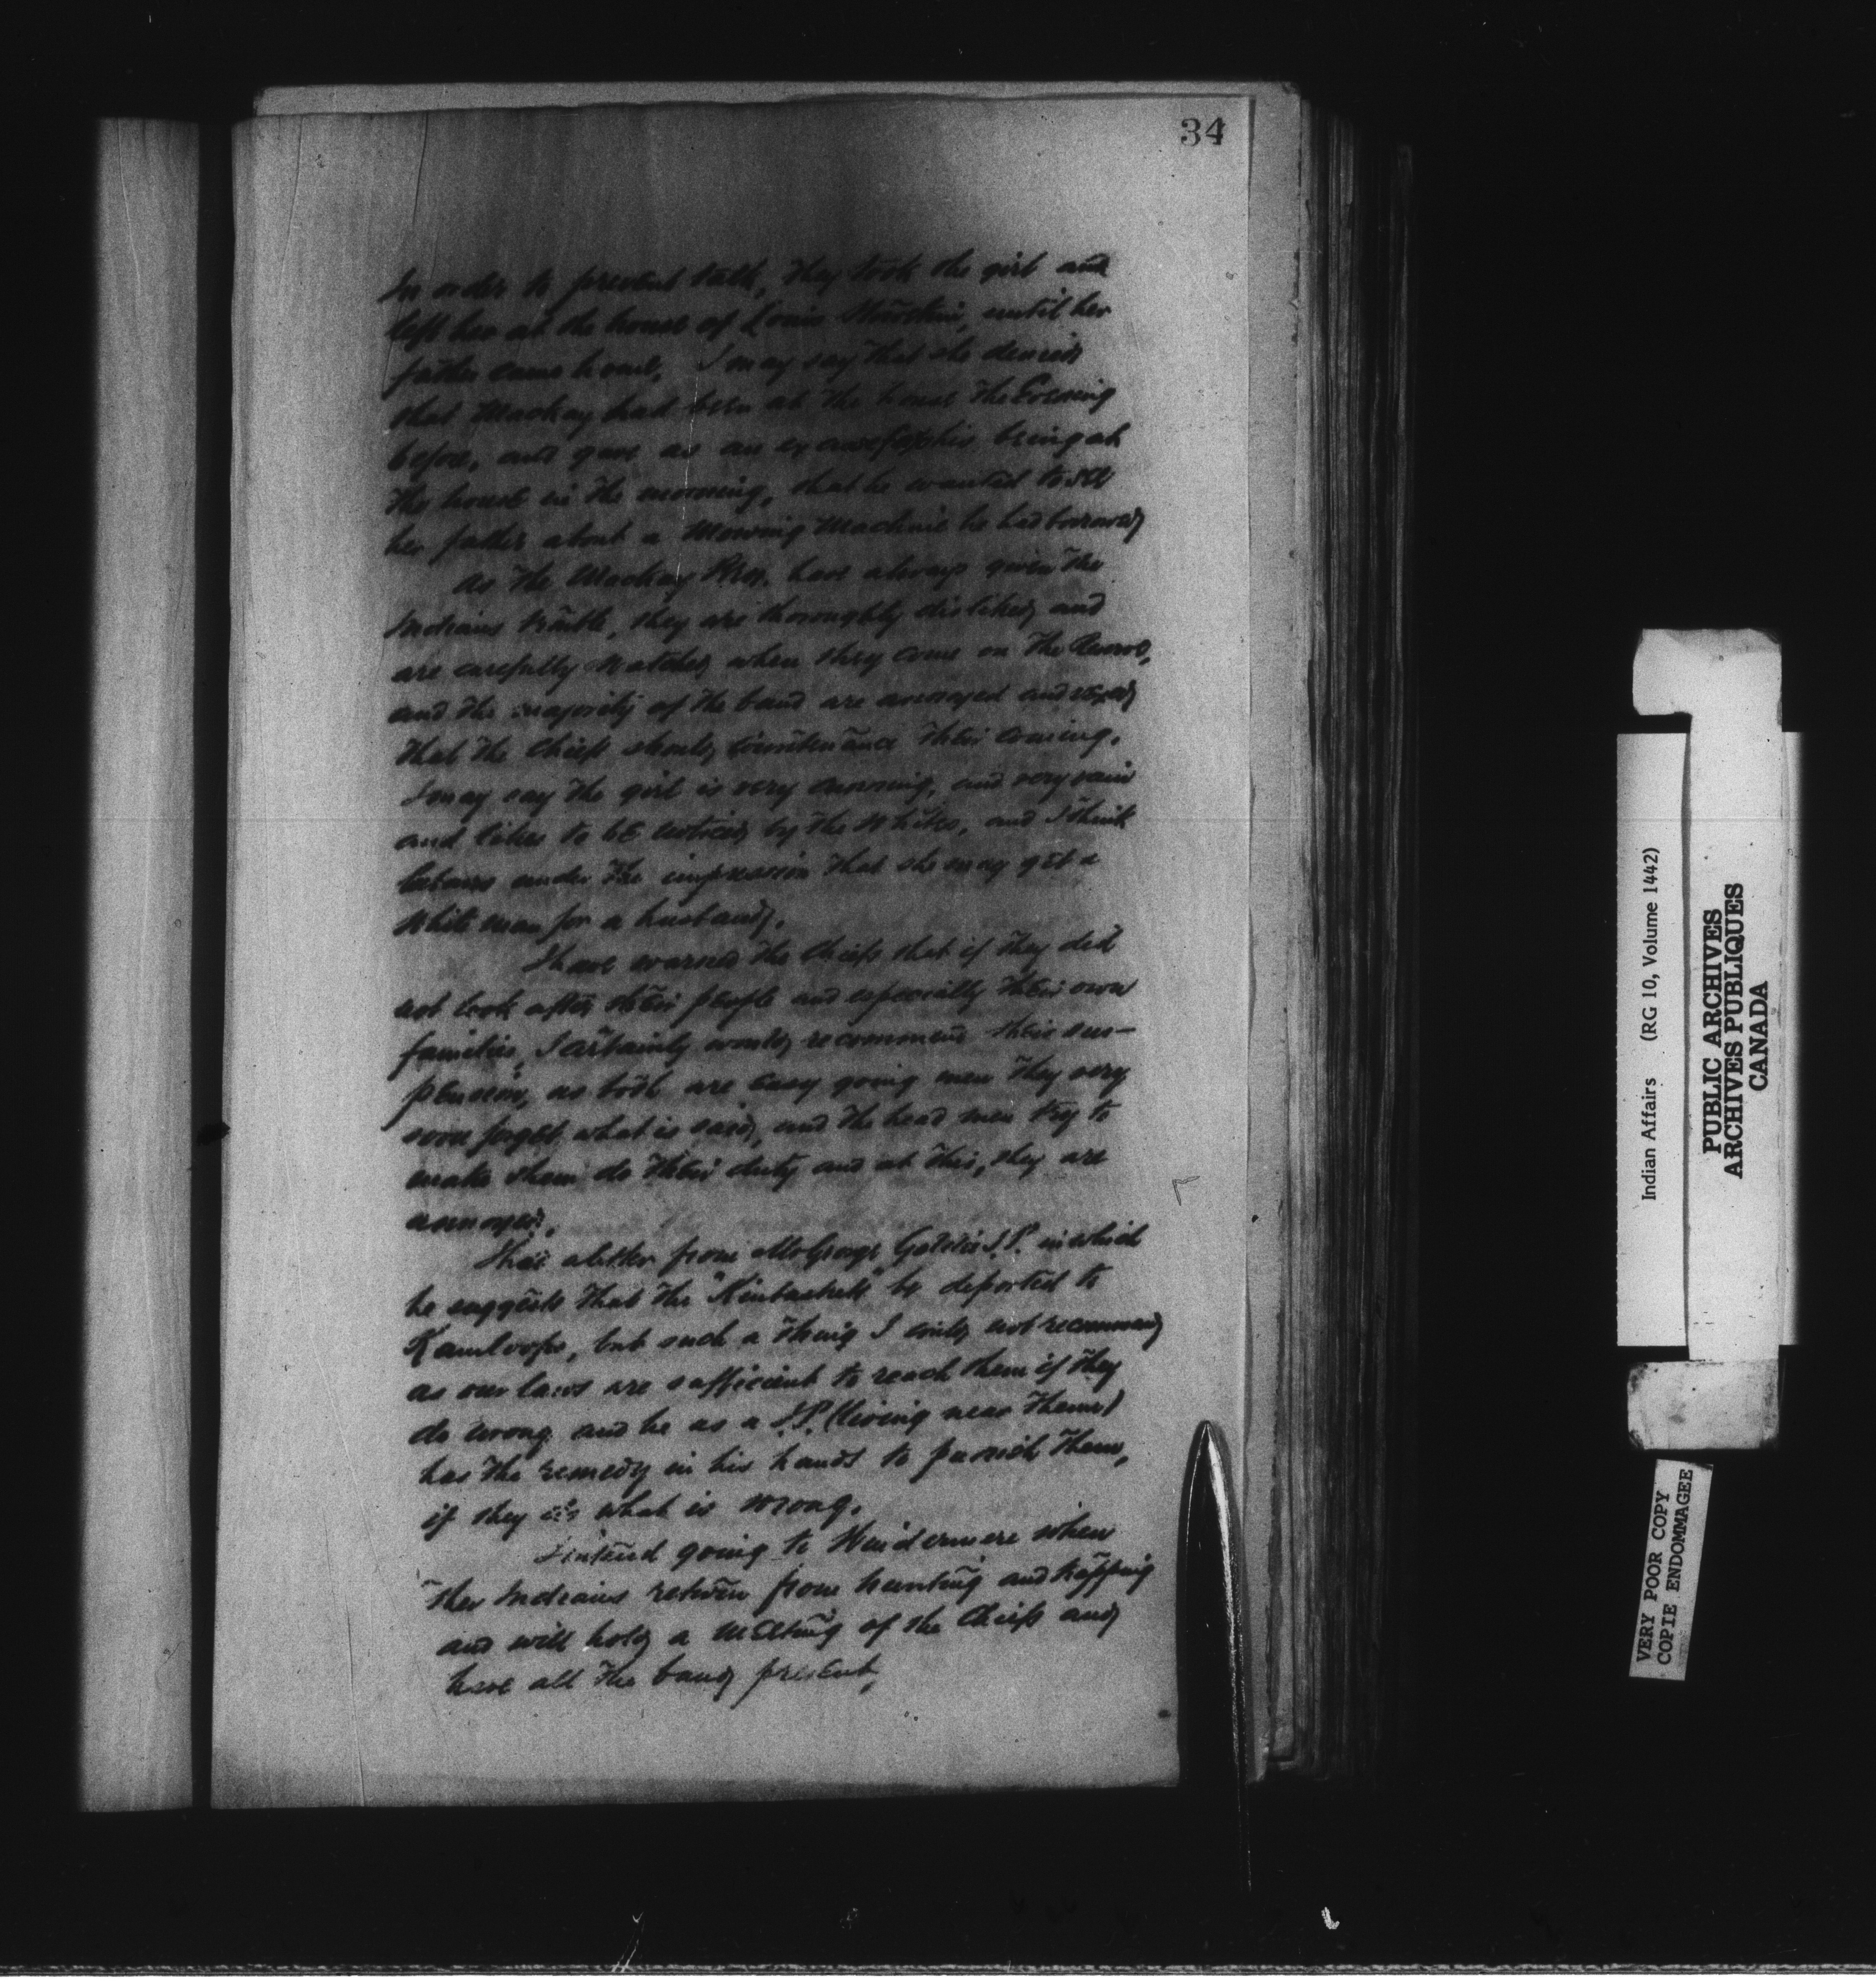 34
In order to prevent talk, they took the girl and
left her at the house of Louis, until her
father came home. I may say that she denied
that Mackay had been at the house the Evening
before, and gave as an excuse for his being at
the house in the morning, that he wanted to see
her father about a Mowing Machine he had borrowed
As the Mackay Bros. have always given the
Indians trouble, they are thoroughly disliked and
are carefully watched when they come on the Reserve,
and the majority of the band are annoyed and vexed
that the Chiefs should countenance their coming.
I may say the girl is very cunning, and very vain
and likes to be noticed by the Whites, and I think
labours under the impression that she may get a
White man for a husband.
I have warned the Chiefs that if they did
not look after their people and especially their own
families, I certainly would recommend their sus-
pension, as both are easy going men they very
soon forget what is said, and the head men try to
make them do their duty and at this, they are
annoyed.
I had a letter from Mr George Goldie J.P. in which
he suggests that the "Kinbaskets" be deported to
Kamloops, but such a thing I could not recommend
as our laws are sufficient to reach them if they
do wrong and he as a J.P. (living near them)
has the remedy in his hands to punish them,
if they do what is wrong.
I intend going to Windermere when
the Indians return from hunting and trapping
and will hold a meeting of the Chiefs and
have all the band present,
Indian Affairs (RG 10, Volume 1442)
PUBLIC ARCHIVES
ARCHIVES PUBLIQUES
CANADA
VERY POOR COPY
COPIE ENDOMMAGEE